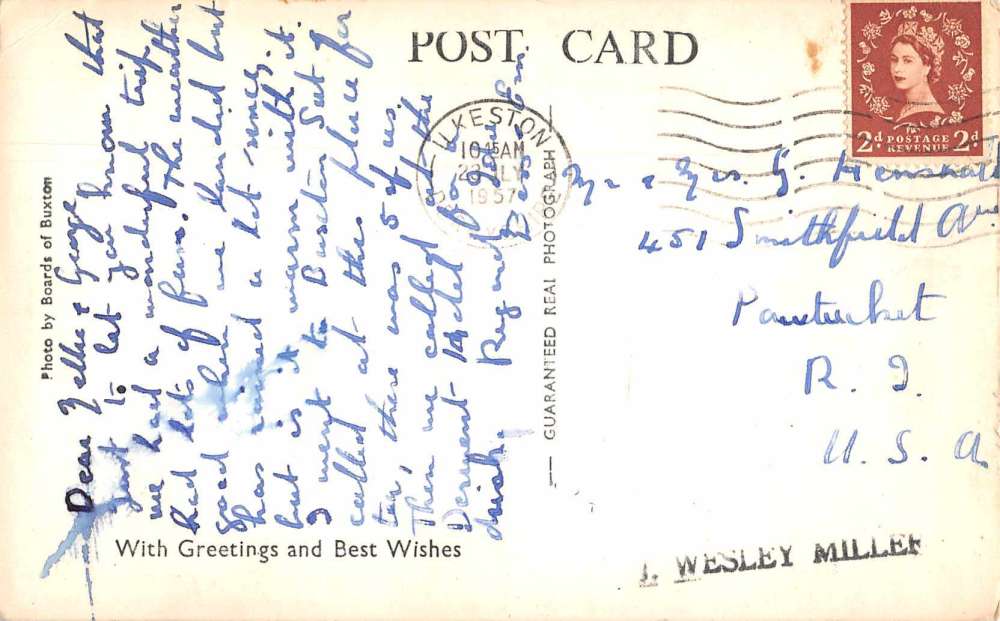 POST CARD
Photo by Boards of Buxton
Dear Nellie & George
just to let you know that
we had a wonderful trip
had lots of fun. The weather
good when we landed but
has rained a lot since,
but is it warm with it.
I went to Buxton Sat
called at this place for
tea, there was 5 of us,
Then we called at the
Derwent Hotel for a
drink.
Reg and
GUARANTEED REAL PHOTOGRAPH
With Greetings and Best Wishes
ILKESTON
10 45 AM
JLY
1957
2d POSTAGE 2d
REVENUE
Mr & Mrs. G. Henshall
451 Smithfield Ave
Pawtucket
R. I.
U. S. A
J. WESLEY MILLER